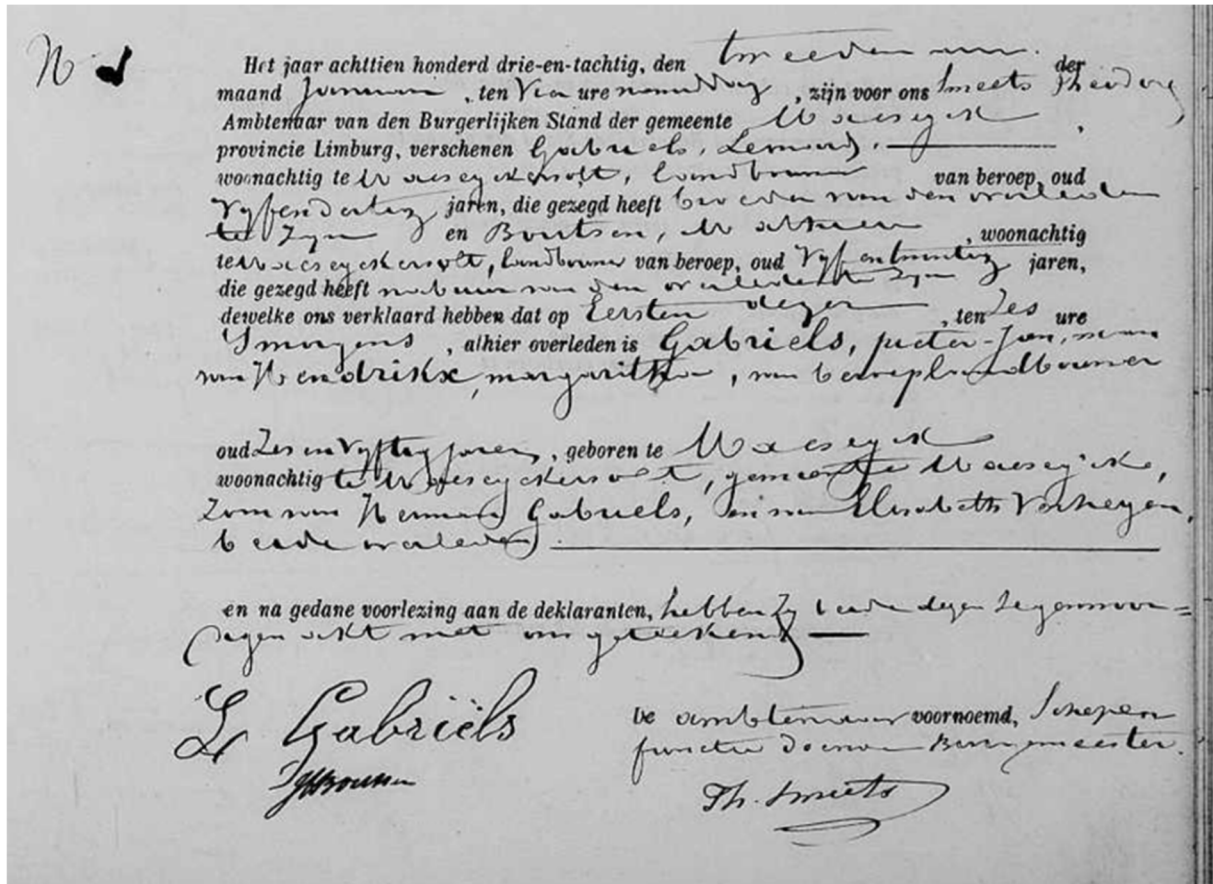 N 1
Het jaar achttien honderd drie-en-tachtig, den tweeden der
maand Januari, ten Vier ure namiddag, zijn voor ons Smeets Theodoor
Ambtenaar van den Burgerlijken Stand der gemeente Maeseyck,
provincie Limburg, verschenen Gabriels, Lenard,
woonachtig te Maeseyckervelt, landbouwer van beroep, oud
Vyfendertig jaren, die gezegd heeft broeder van den overleden
te Zyn en Boutsen, woonachtig
te Maeseyckervelt, landbouwer van beroep, oud Vyfentwintig jaren,
die gezegd heeft nabuur van den overledene te Zyn
dewelke ons verklaard hebben dat op Eersten dezer, ten Zes ure
Smorgens, alhier overleden is Gabriels, pieter-Jan, man
van Hendrikx margaritha, van beroep landbouwer
oud Zesenvyftig jaren, geboren te Maeseyck
woonachtig te Maeseyckervelt, gemeente Maeseyck,
Zoon van Herman Gabriels, en van Elisabeth Verheyen,
beide overleden.
en na gedane voorlezing aan de deklaranten, hebben Zy beide dezen tegenwoor=
digen akt met ons geteekend
L Gabriëls
De ambtenaar voornoemd, Schepen
functie doende Burgemeester.
Th. Smeets